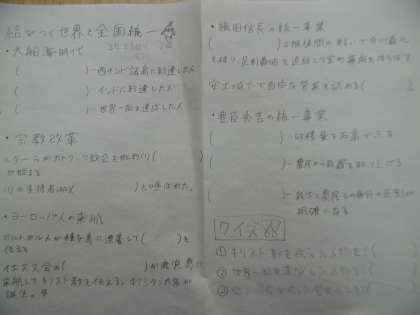 結びつく世界と全国統一
・大航海時代
(　　　　)-西インド諸島に到達した人
(　　　　)-インドに到達した人
(　　　　)-世界一周を達成した人
・宗教改革
ルターらがカトリック教会を批判(1)(　　　　)
が始まる
(1)の支持者は(　　　　)と呼ばれた。
・ヨーロッパ人の来航
ポルトガル人が種子島に漂着して(　　　　)を
伝える
イエズス会の(　　　　)が鹿児島に
来航してキリスト教を伝える。キリシタン大名が
誕生。
・織田信長の統一事業
(　　　　)は桶狭間の戦いで今川義元
を破り、足利義昭を追放して室町幕府をほろぼす
安土城下で自由な営業を認める(　　　　)
・豊臣秀吉の統一事業
(　　　　)-収穫量を石高で表す
(　　　　)-農民から武器を取り上げる
(　　　　)-武士と農民との身分の区別が
明確になる
クイズ
①キリスト教を伝えた人物は?(　　　　)
②世界一周を達成した人は?(　　　　)